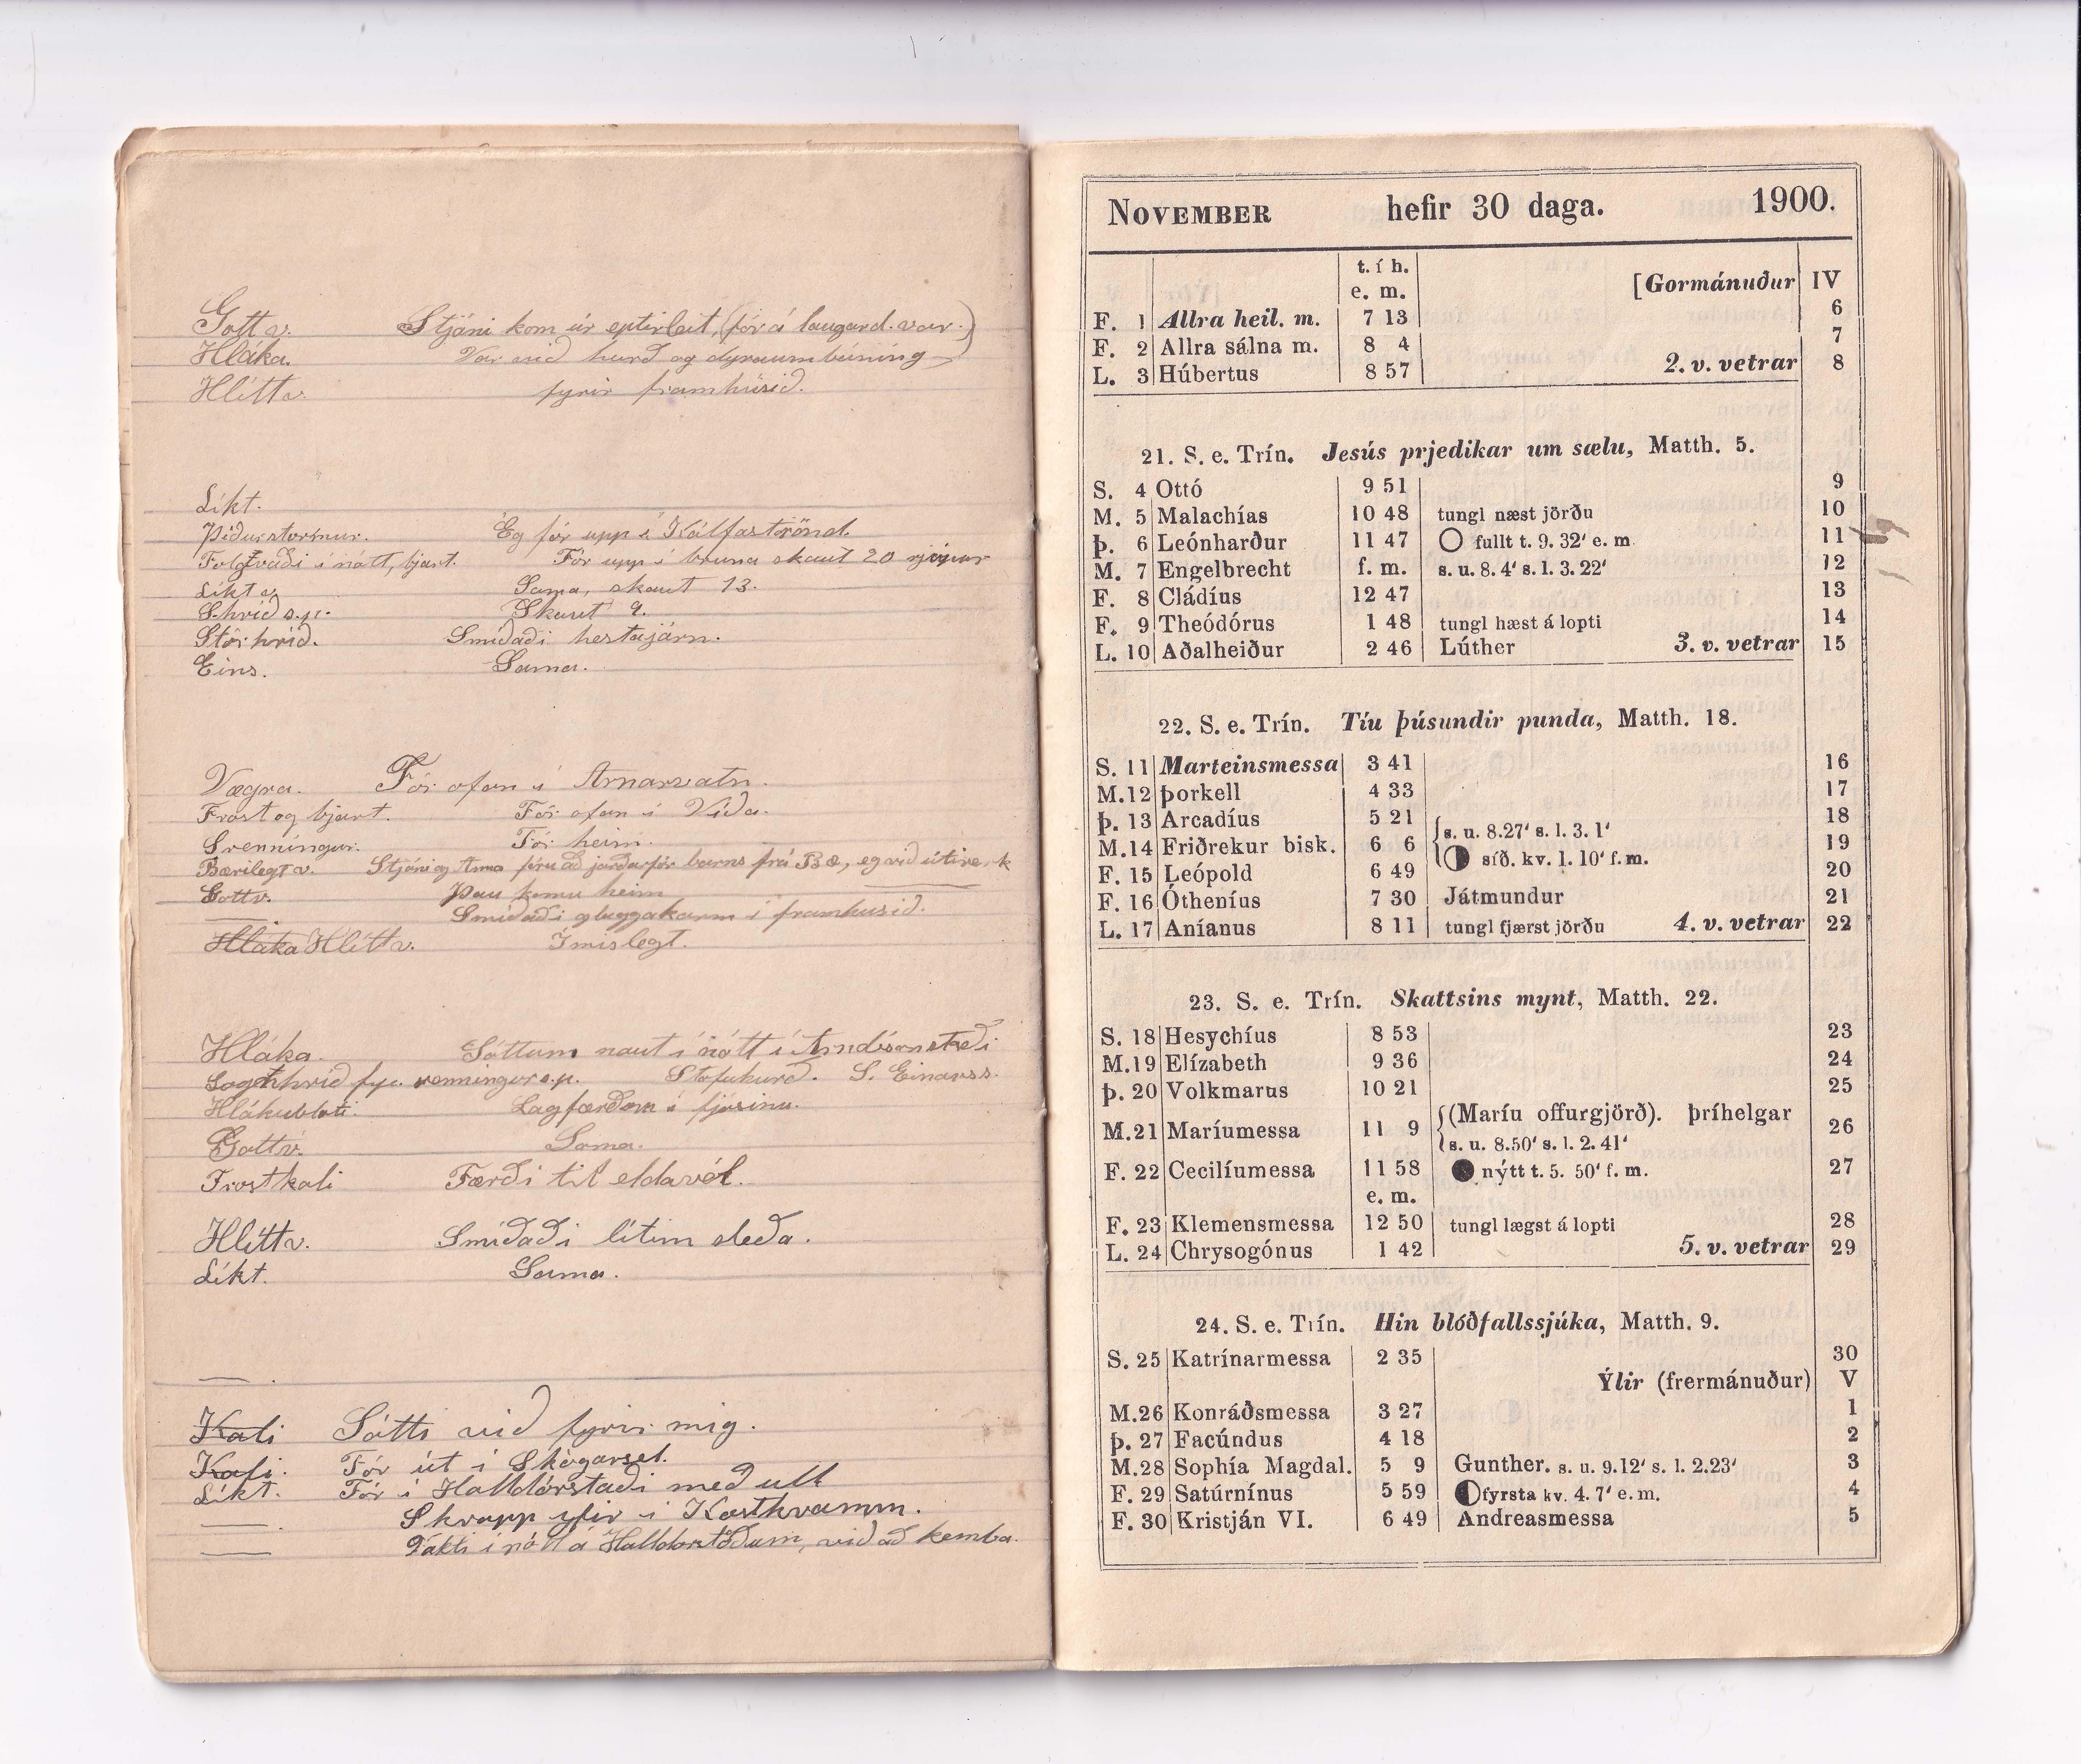 Gott v. Stjáni kom úr eptirleit, (fór á laugard. var.)
Hláka. Var við hurð og dyraumbúning
Hlítt v. fyrir framhúsið.
Líkt.
Þíðustormur. Ég fór upp í Kálfaströnd.
í nótt, bjart. Fór upp í bruna skaut 20 rjúpur
Líkt Sama, skaut 13.
Skaut 9.
Stórhríð. Smíðaði hestajárn.
Eins. Sama.
Vægra. Fór ofan í Arnarvatn.
Frost og bjart. Fór ofan í Víða.
Srenningur. Fór heim.
Bærilegt v. Stjáni og Anna fóru að jarðarför barns frá Bæ, eg við útiverk
Gott v. Þau komu heim
— Smíðaði gluggakarm í framhusið.
Hláka Hlítt v. Ímislegt.
Hláka. Sóttum naut í nótt í
renningur s.p. Stofuhurð. S. Einarss.
Hlákubloti. Lagfærðum í fjósinu.
Gott v. Sama.
Frostkali Færði til eldavél.
Hlítt v. Smíðaði lítinn sleða.
Líkt. Sama.
— .
Kali Sótti við fyrir mig.
Kali. Fór út í Skógarsel.
Líkt. Fór í Halldórstaði með ull
— . Skrapp yfir í Kasthvamm.
— Vakti í nótt á Halldorstöðum, við að kemba.
NOVEMBER hefir 30 daga. 1900.
t. í h.
e. m. [Gormánuður IV
F. 1 Allra heil. m. 7 13 6
F. 2 Allra sálna m. 8 4 7
L. 3 Húbertus 8 57 2. v. vetrar 8
21. S. e. Trín. Jesús prjedikar um sælu, Matth. 5.
S. 4 Ottó 9 51 9
M. 5 Malachías 10 48 tungl næst jörðu 10
Þ. 6 Leónharður 11 47 fullt t. 9. 32′ e. m 11
M. 7 Engelbrecht f. m. s. u. 8. 4′ s. l. 3. 22′ 12
F. 8 Cládíus 12 47 13
F. 9 Theódórus 1 48 tungl hæst á lopti 14
L. 10 Aðalheiður 2 46 Lúther 3. v. vetrar 15
22. S. e. Trín. Tíu þúsundir punda, Matth. 18.
S. 11 Marteinsmessa 3 41 16
M. 12 Þorkell 4 33 17
Þ. 13 Arcadíus 5 21 18
M. 14 Friðrekur bisk. 6 6 {s. u. 8.27′ s. l. 3. 1′ 19
síð. kv. l. 10′ f. m.
F. 15 Leópold 6 49 20
F. 16 Ótheníus 7 30 Játmundur 21
L. 17 Aníanus 8 11 tungl fjærst jörðu 4. v. vetrar 22
23. S. e. Trín. Skattsins mynt, Matth. 22.
S. 18 Hesychíus 8 53 23
M. 19 Elízabeth 9 36 24
Þ. 20 Volkmarus 10 21 25
M. 21 Maríumessa 11 9 {(Maríu offurgjörð). Þríhelgar 26
s. u. 8.50′ s. l. 2. 41′
F. 22 Cecilíumessa 11 58 nýtt t. 5. 50′ f. m. 27
e. m.
F. 23 Klemensmessa 12 50 tungl lægst á lopti 28
L. 24 Chrysogónus 1 42 5. v. vetrar 29
24. S. e. Trín. Hin blóðfallssjúka, Matth. 9.
S. 25 Katrínarmessa 2 35 30
Ýlir (frermánuður) V
M. 26 Konráðsmessa 3 27 1
Þ. 27 Facúndus 4 18 2
M. 28 Sophía Magdal. 5 9 Gunther. s. u. 9.12′ s. l. 2.23′ 3
F. 29 Satúrnínus 5 59 fyrsta kv. 4. 7′ e. m. 4
F. 30 Kristján VI. 6 49 Andreasmessa 5